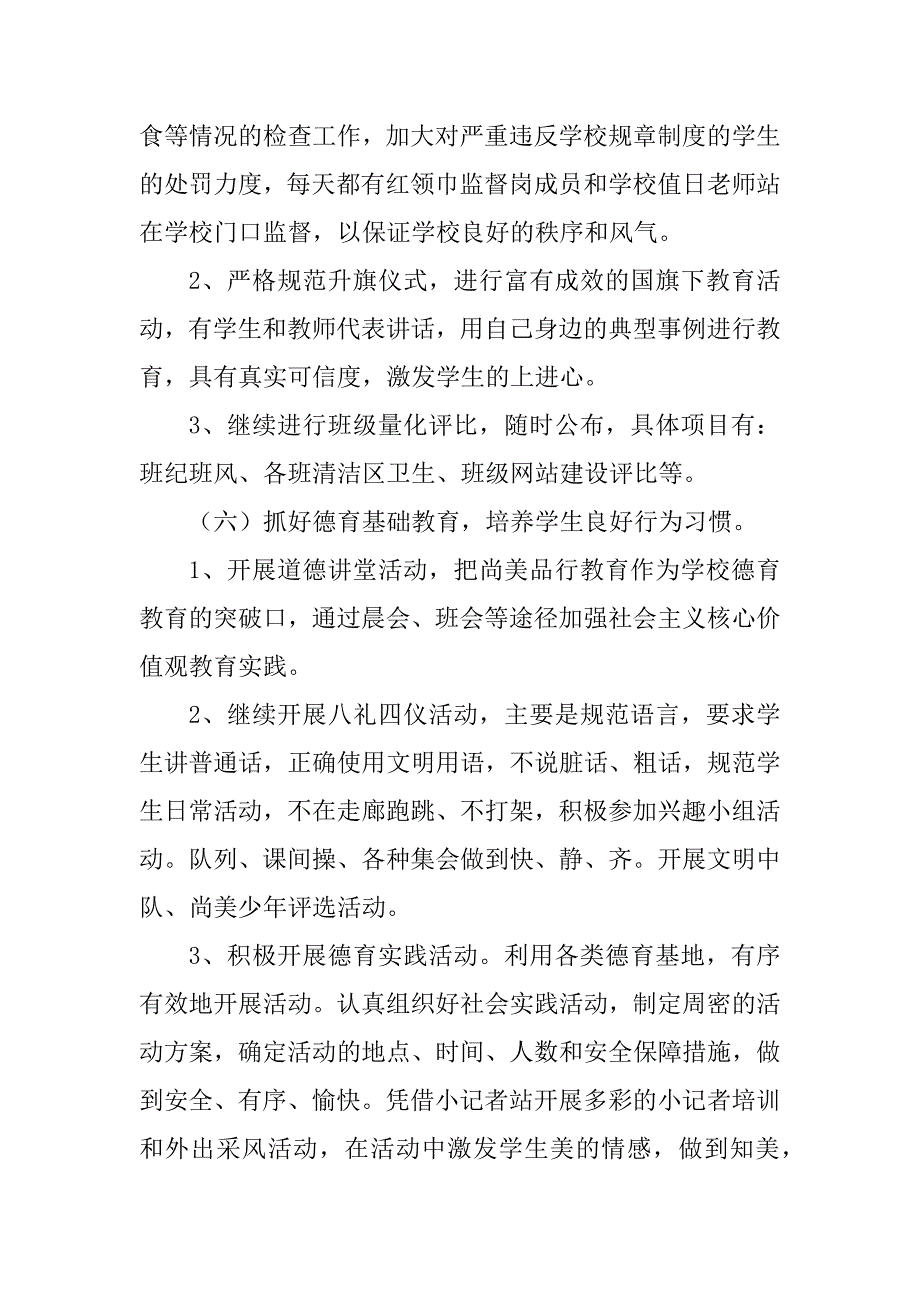 食等情况的检查工作，加大对严重违反学校规章制度的学生
的处罚力度，每天都有红领巾监督岗成员和学校值日老师站
在学校门口监督，以保证学校良好的秩序和风气。
2、严格规范升旗仪式，进行富有成效的国旗下教育活
动，有学生和教师代表讲话，用自己身边的典型事例进行教
育，具有真实可信度，激发学生的上进心。
3、继续进行班级量化评比，随时公布，具体项目有：
班纪班风、各班清洁区卫生、班级网站建设评比等。
（六）抓好德育基础教育，培养学生良好行为习惯。
1、开展道德讲堂活动，把尚美品行教育作为学校德育
教育的突破口，通过晨会、班会等途径加强社会主义核心价
值观教育实践。
2、继续开展八礼四仪活动，主要是规范语言，要求学
生讲普通话，正确使用文明用语，不说脏话、粗话，规范学
生日常活动，不在走廊跑跳、不打架，积极参加兴趣小组活
动。队列、课间操、各种集会做到快、静、齐。开展文明中
队、尚美少年评选活动。
3、积极开展德育实践活动。利用各类德育基地，有序
有效地开展活动。认真组织好社会实践活动，制定周密的活
动方案，确定活动的地点、时间、人数和安全保障措施，做
到安全、有序、愉快。凭借小记者站开展多彩的小记者培训
和外出采风活动，在活动中激发学生美的情感，做到知美，